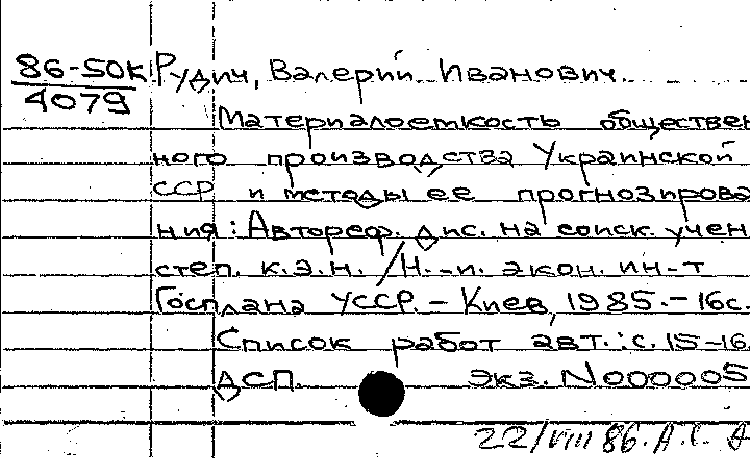 86-50к Рудич, Валерий Иванович.
4079
Материалоемкость обществен
ного производства Украинской
ССР и методы ее прогнозирова
ния: Автореф. дис. на соиск. учен
степ. к.э.н. /Н.-и. экон. ин-т
Госплана УССР. - Киев, 1985. - 16с.
Список работ авт.: с. 15-16
ДСП. Экз. N000005
22/VIII 86. А.С.